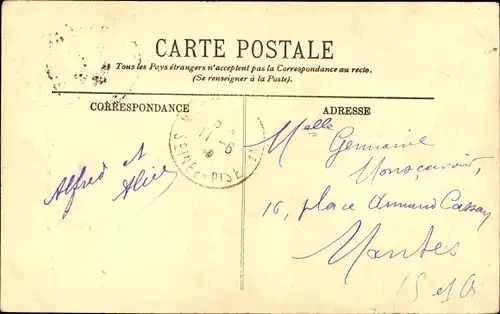 CARTE POSTALE
Tous les Pays étrangers n'acceptent pas la Correspondance au recto.
(Se renseigner à la Poste).
CORRESPONDANCE
ADRESSE
SEINE ET OISE
11 -6
Alfred et
Alice
Melle Germaine
16, place Armand Cassan
Mantes
S et O